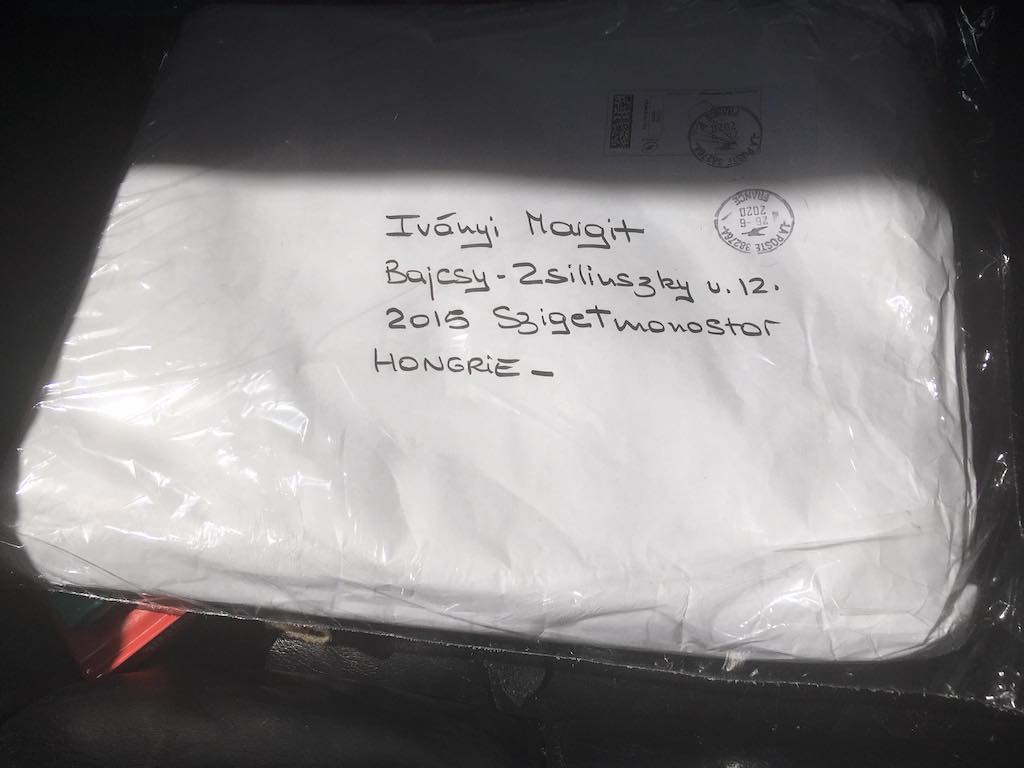 Iványi Margit
Bajcsy-Zsiliuszky u. 12.
2015 Szigetmonostor
HONGRIE -
LA POSTE 38276A
26-6
2020
FRANCE